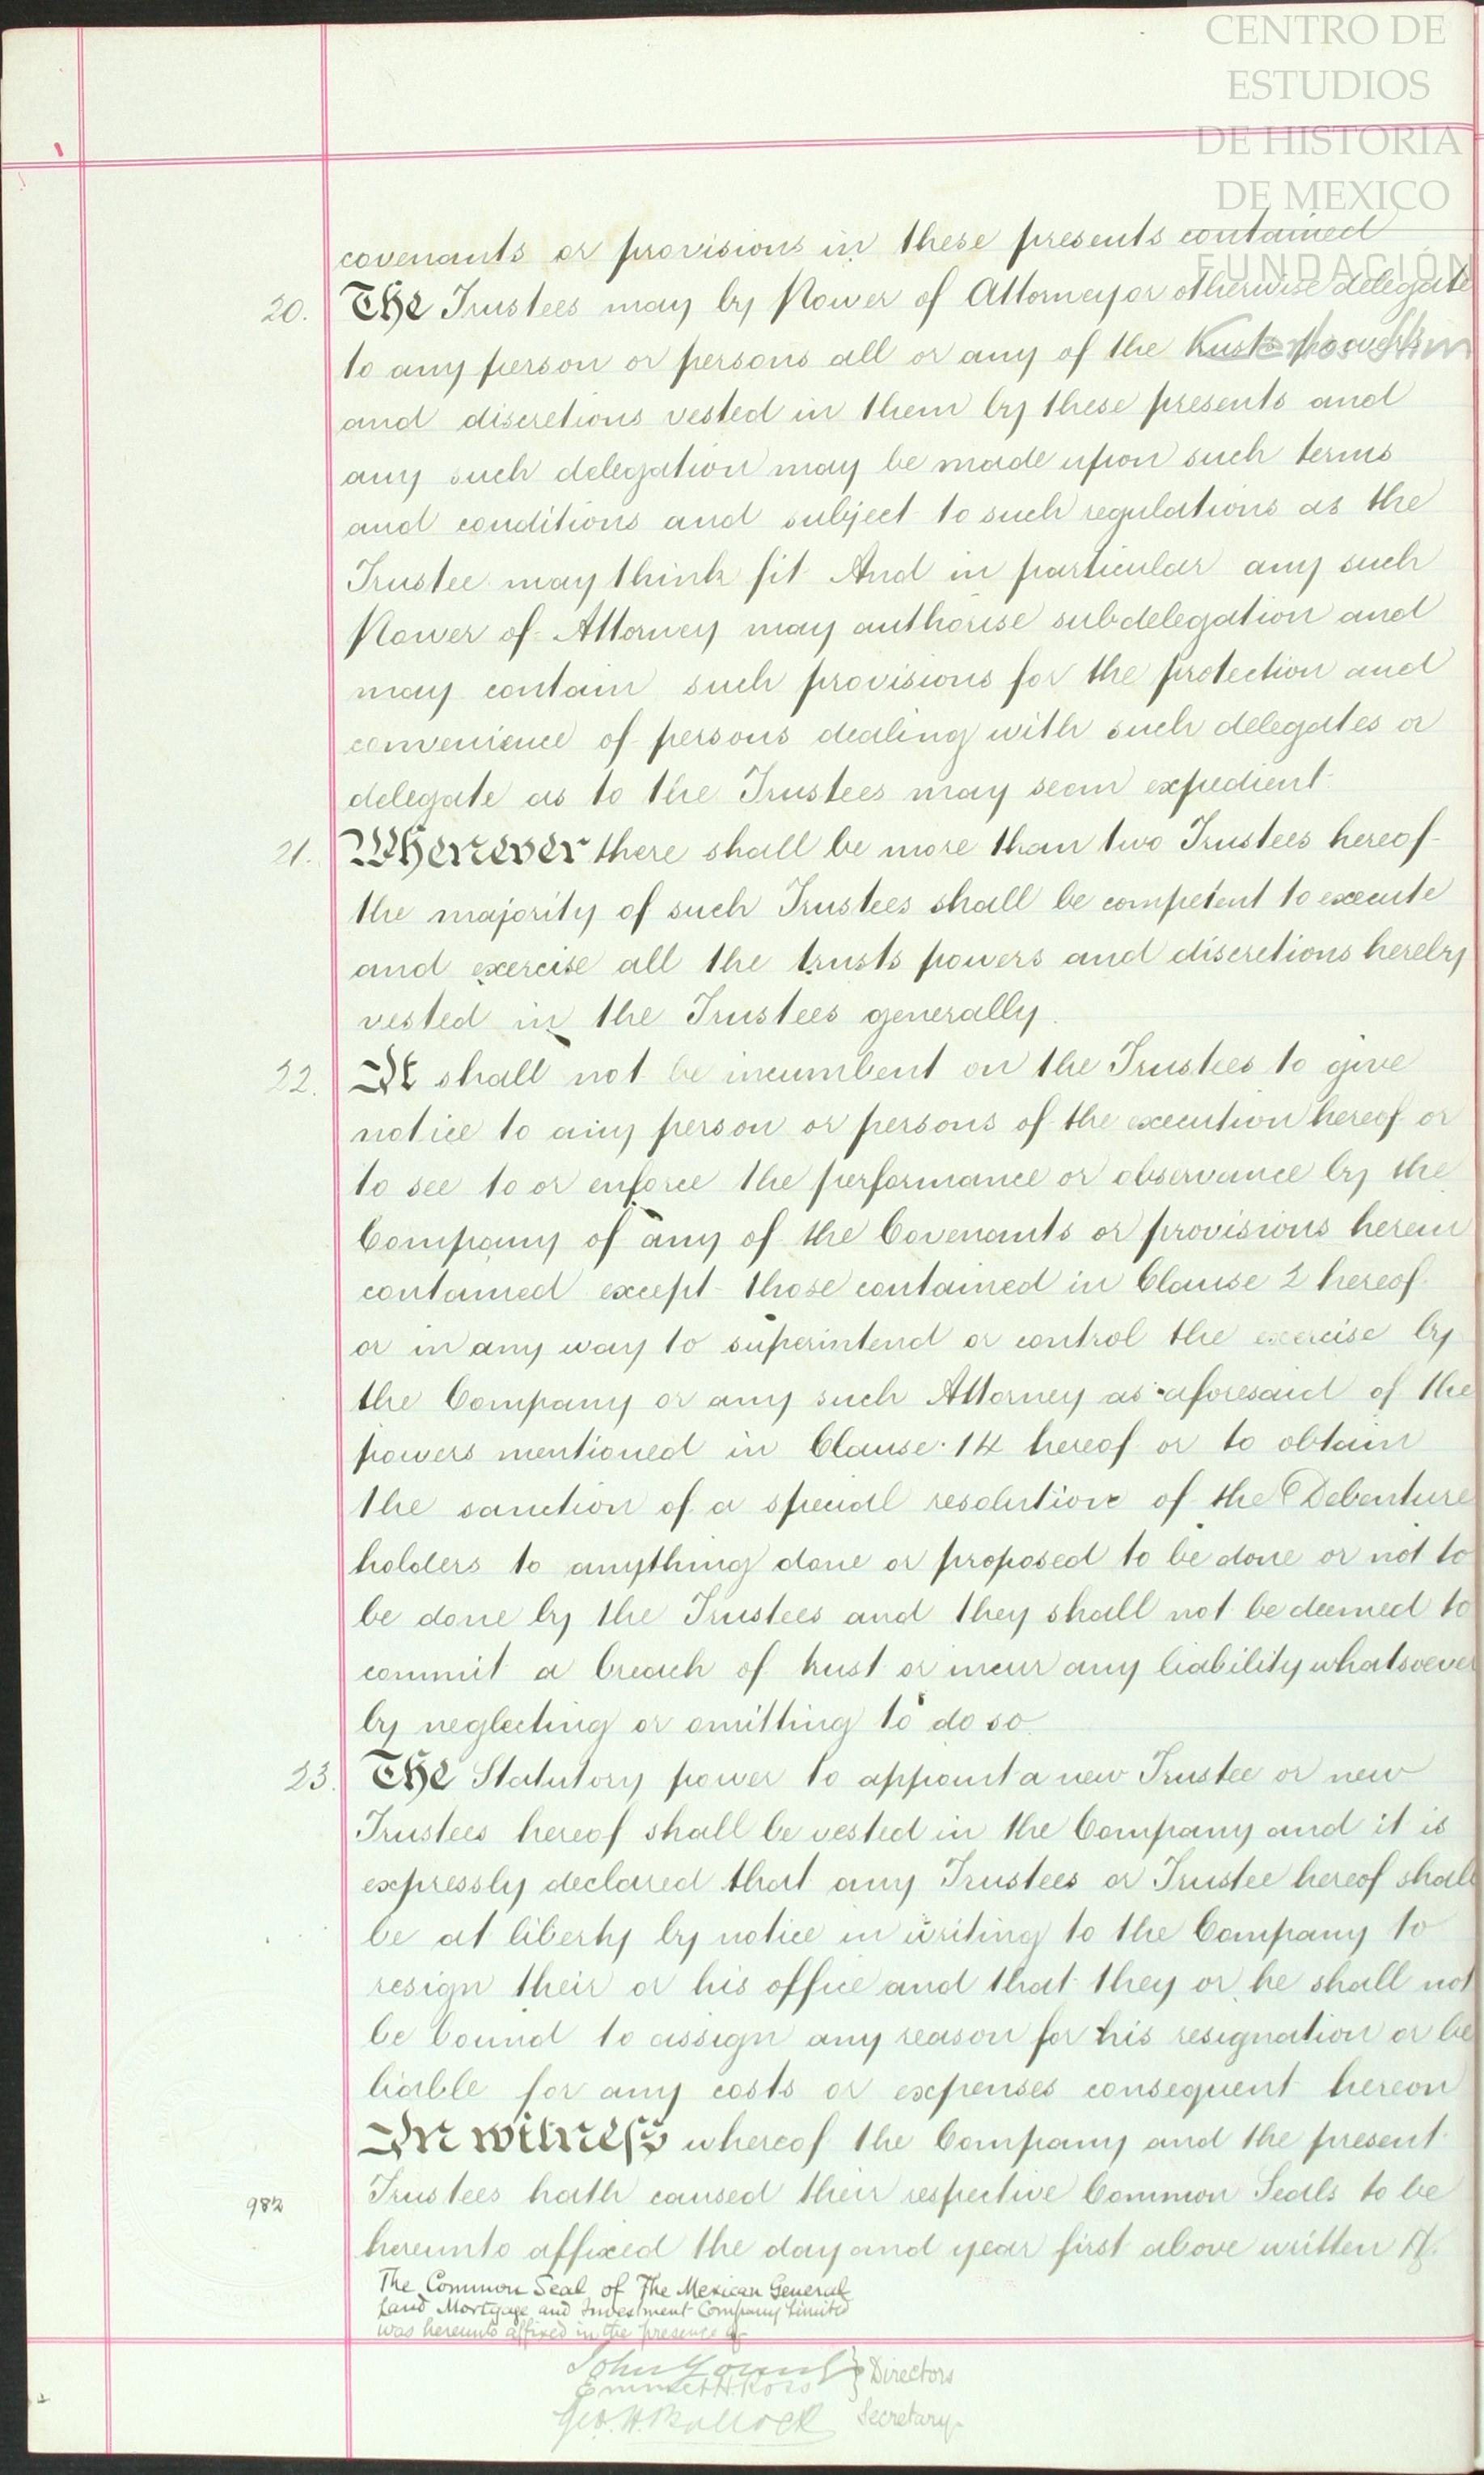 CENTRO DE
ESTUDIOS
DE HISTORIA
DE MEXICO
FUNDACIÓN
covenants or provisions in these presents contained
20. The Trustees may by Power of Attorney or otherwise delegate
to any person or persons all or any of the trusts powers
and discretions vested in them by these presents and
any such delegation may be made upon such terms
and conditions and subject to such regulations as the
Trustee may think fit And in particular any such
Power of Attorney may authorise subdelegation and
may contain such provisions for the protection and
convenience of persons dealing with such delegates or
delegate as to the Trustees may seem expedient.
21. Whenever there shall be more than two Trustees hereof
the majority of such Trustees shall be competent to execute
and exercise all the trusts powers and discretions hereby
vested in the Trustees generally.
22. It shall not be incumbent on the Trustees to give
notice to any person or persons of the execution hereof or
to see to or enforce the performance or observance by the
Company of any of the Covenants or provisions herein
contained except those contained in Clause 2 hereof
or in any way to superintend or control the exercise by
the Company or any such Attorney as aforesaid of the
powers mentioned in Clause 14 hereof or to obtain
the sanction of a special resolution of the Debenture
holders to anything done or proposed to be done or not to
be done by the Trustees and they shall not be deemed to
commit a breach of trust or incur any liability whatsoever
by neglecting or omitting to do so.
23. The Statutory power to appoint a new Trustee or new
Trustees hereof shall be vested in the Company and it is
expressly declared that any Trustees or Trustee hereof shall
be at liberty by notice in writing to the Company to
resign their or his office and that they or he shall not
be bound to assign any reason for his resignation or be
liable for any costs or expenses consequent hereon
In witness whereof the Company and the present
Trustees hath caused their respective Common Seals to be
982
hereunto affixed the day and year first above written
The Common Seal of The Mexican General
Land Mortgage and Investment Company Limited
was hereunto affixed in the presence of
John Young } Directors
Emmet H. Ross
Geo. H. Bullock Secretary.